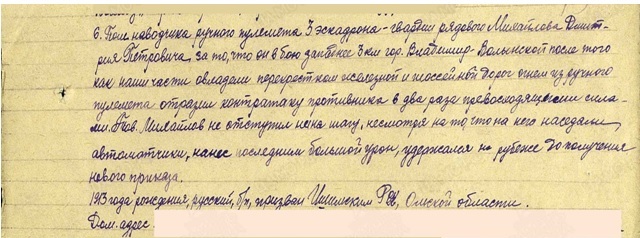 6. Пом. наводчика ручного пулемета 3 эскадрона - гвардии рядового Михайлова Дмит-
рия Петровича за то, что он в бою западнее 3 км гор. Владимир-Волынской после того
как наши части овладели перекрестком железной и шоссейной дорог огнем из ручного
пулемета отразил контратаку противника в два раза превосходящими сила-
ми. Тов. Михайлов не отступил не на шагу, несмотря на то, что на него наседали
автоматчики, нанес последним большой урон, удержался на рубеже до получения
нового приказа.
1913 года рождения, русский, б/п, призван Ишимским РВК, Омской области.
Дом. адрес